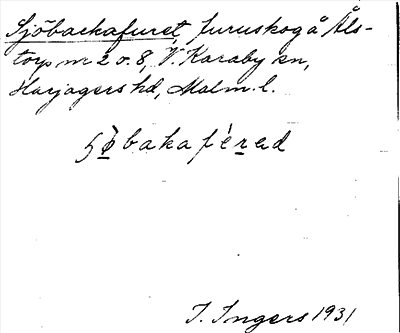 Sjöbackafuret, furuskog å Åls-
torp nr 2 o. 8, V. Karaby sn,
Harjagers hd, Malm. l.
I. Ingers 1931